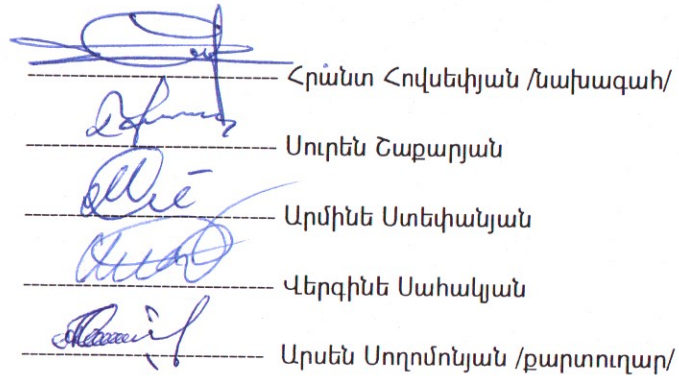 ---------------------------- Հրանտ Հովսեփյան /նախագահ/
---------------------------- Սուրեն Շաքարյան
---------------------------- Արմինե Ստեփանյան
---------------------------- Վերգինե Սահակյան
---------------------------- Արսեն Սողոմոնյան /քարտուղար/